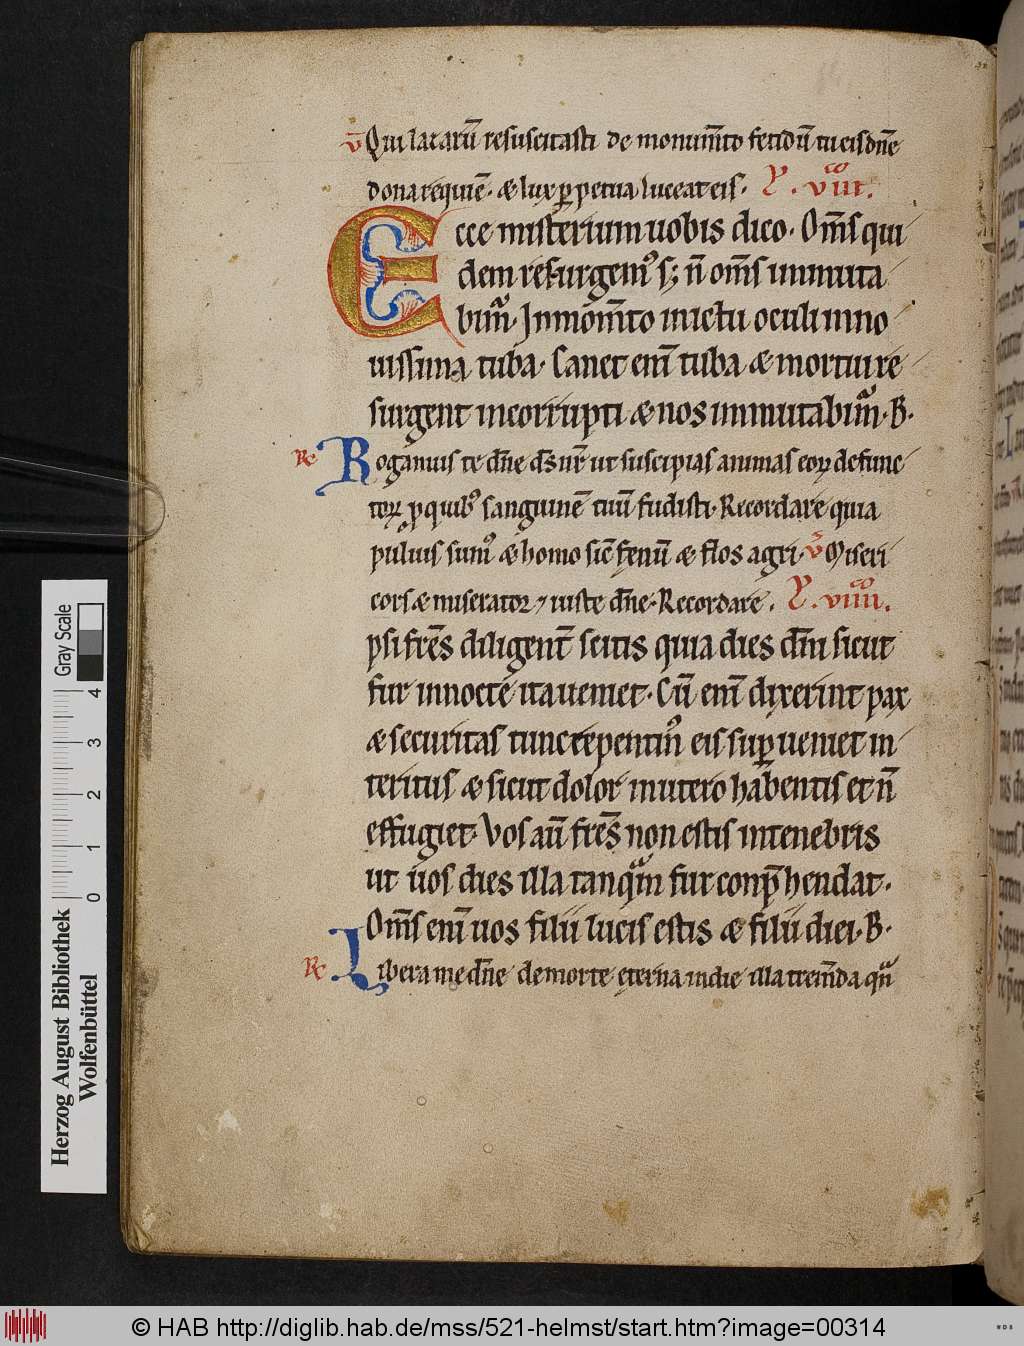 v̄ Qui lazarū resuscitasti de monum̄to fetidū tu eis dn̄e
dona requiē. & lux ꝑpetua luceat eis. L. viii.
Ecce misterium uobis dico. Om̄s qui
dem resurgem⁹ sꝫ n̄ om̄s inmuta
bimᷓ. In mom̄to in ictu oculi in no
uissima tuba. Canet eni̅ tuba & mortui re
surgent incorrupti & nos inmutabimᷓ. B.
R̵ Rogamus te dn̄e ds̄ nr̄ ut suscipias animas eoꝝ defunc
toꝝ ꝓ quibꝰ sanguinē tuū fudisti. Recordare quia
puluis sumꝰ & homo sic̄ fęnū & flos agri. v̄ Miseri
cors & miserator ⁊ iuste dn̄e. Recordare. L. viiii.
psi frēs diligent̄ scitis quia dies dn̄i sicut
fur in nocte ita ueniet. Cū eni̅ dixerint pax
& securitas tunc repentin⁹ eis suꝑueniet in
teritus & sicut dolor in utero habentis et n̄
effugiet. Vos aū frēs non estis in tenebris
ut uos dies illa tanqᷓm fur conp̄hendat.
Om̄s eni̅ uos filii lucis estis & filii diei. B.
R̵ Libera me dn̄e de morte ęterna in die illa trem̄da qn̄
Herzog August Bibliothek
Wolfenbüttel
0 1 2 3 4
Gray Scale
© HAB http://diglib.hab.de/mss/521-helmst/start.htm?image=00314